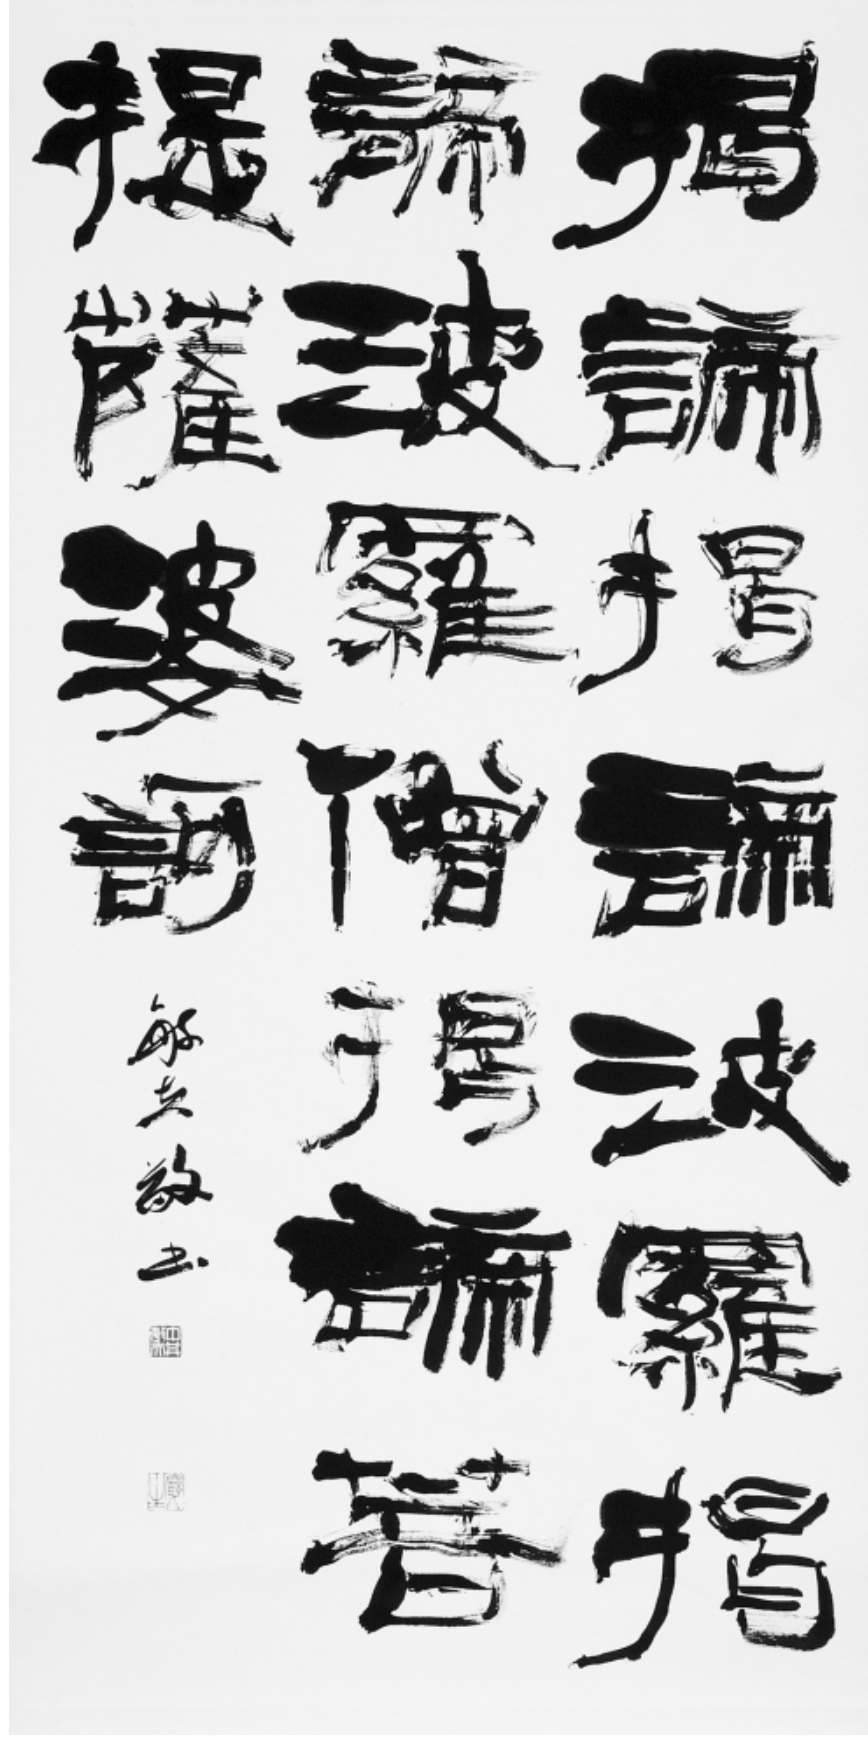 揭諦揭諦波羅揭
諦波羅僧揭諦菩
提薩婆訶
敏夫敬書